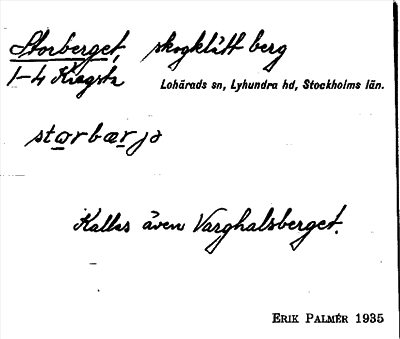 Storberget, skogklätt berg
1-4 Kragsta
Lohärads sn, Lyhundra hd, Stockholms län.
storbærjə
Kallas även Varghalsberget.
ERIK PALMÉR 1935